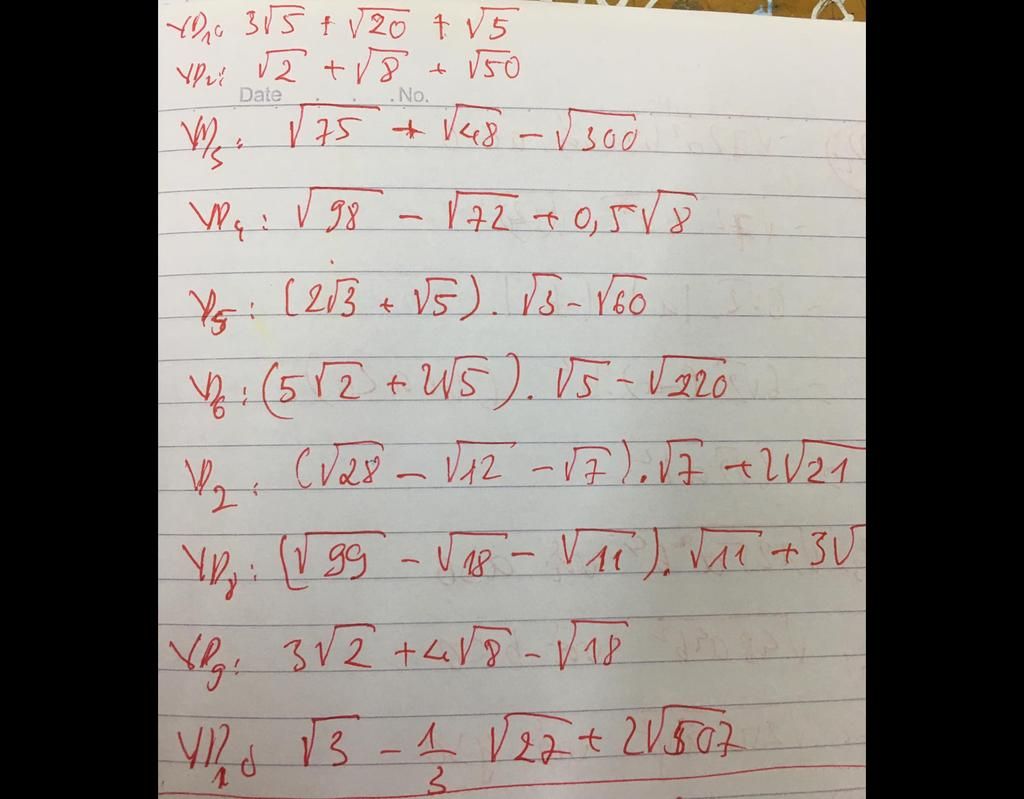 VD₁: 3√5 + √20 + √5
VD₂: √2 + √8 + √50
Date . . . No.
VD₃: √75 + √48 - √300
VD₄: √98 - √72 + 0,5√8
VD₅: (2√3 + √5). √3 - √60
VD₆: (5√2 + 2√5). √5 - √220
VD₇: (√28 - √12 - √7).√7 + 2√21
VD₈: (√99 - √18 - √11). √11 + 3√
VD₉: 3√2 + 4√8 - √18
VD₁₀ √3 - 1/3 √27 + 2√507